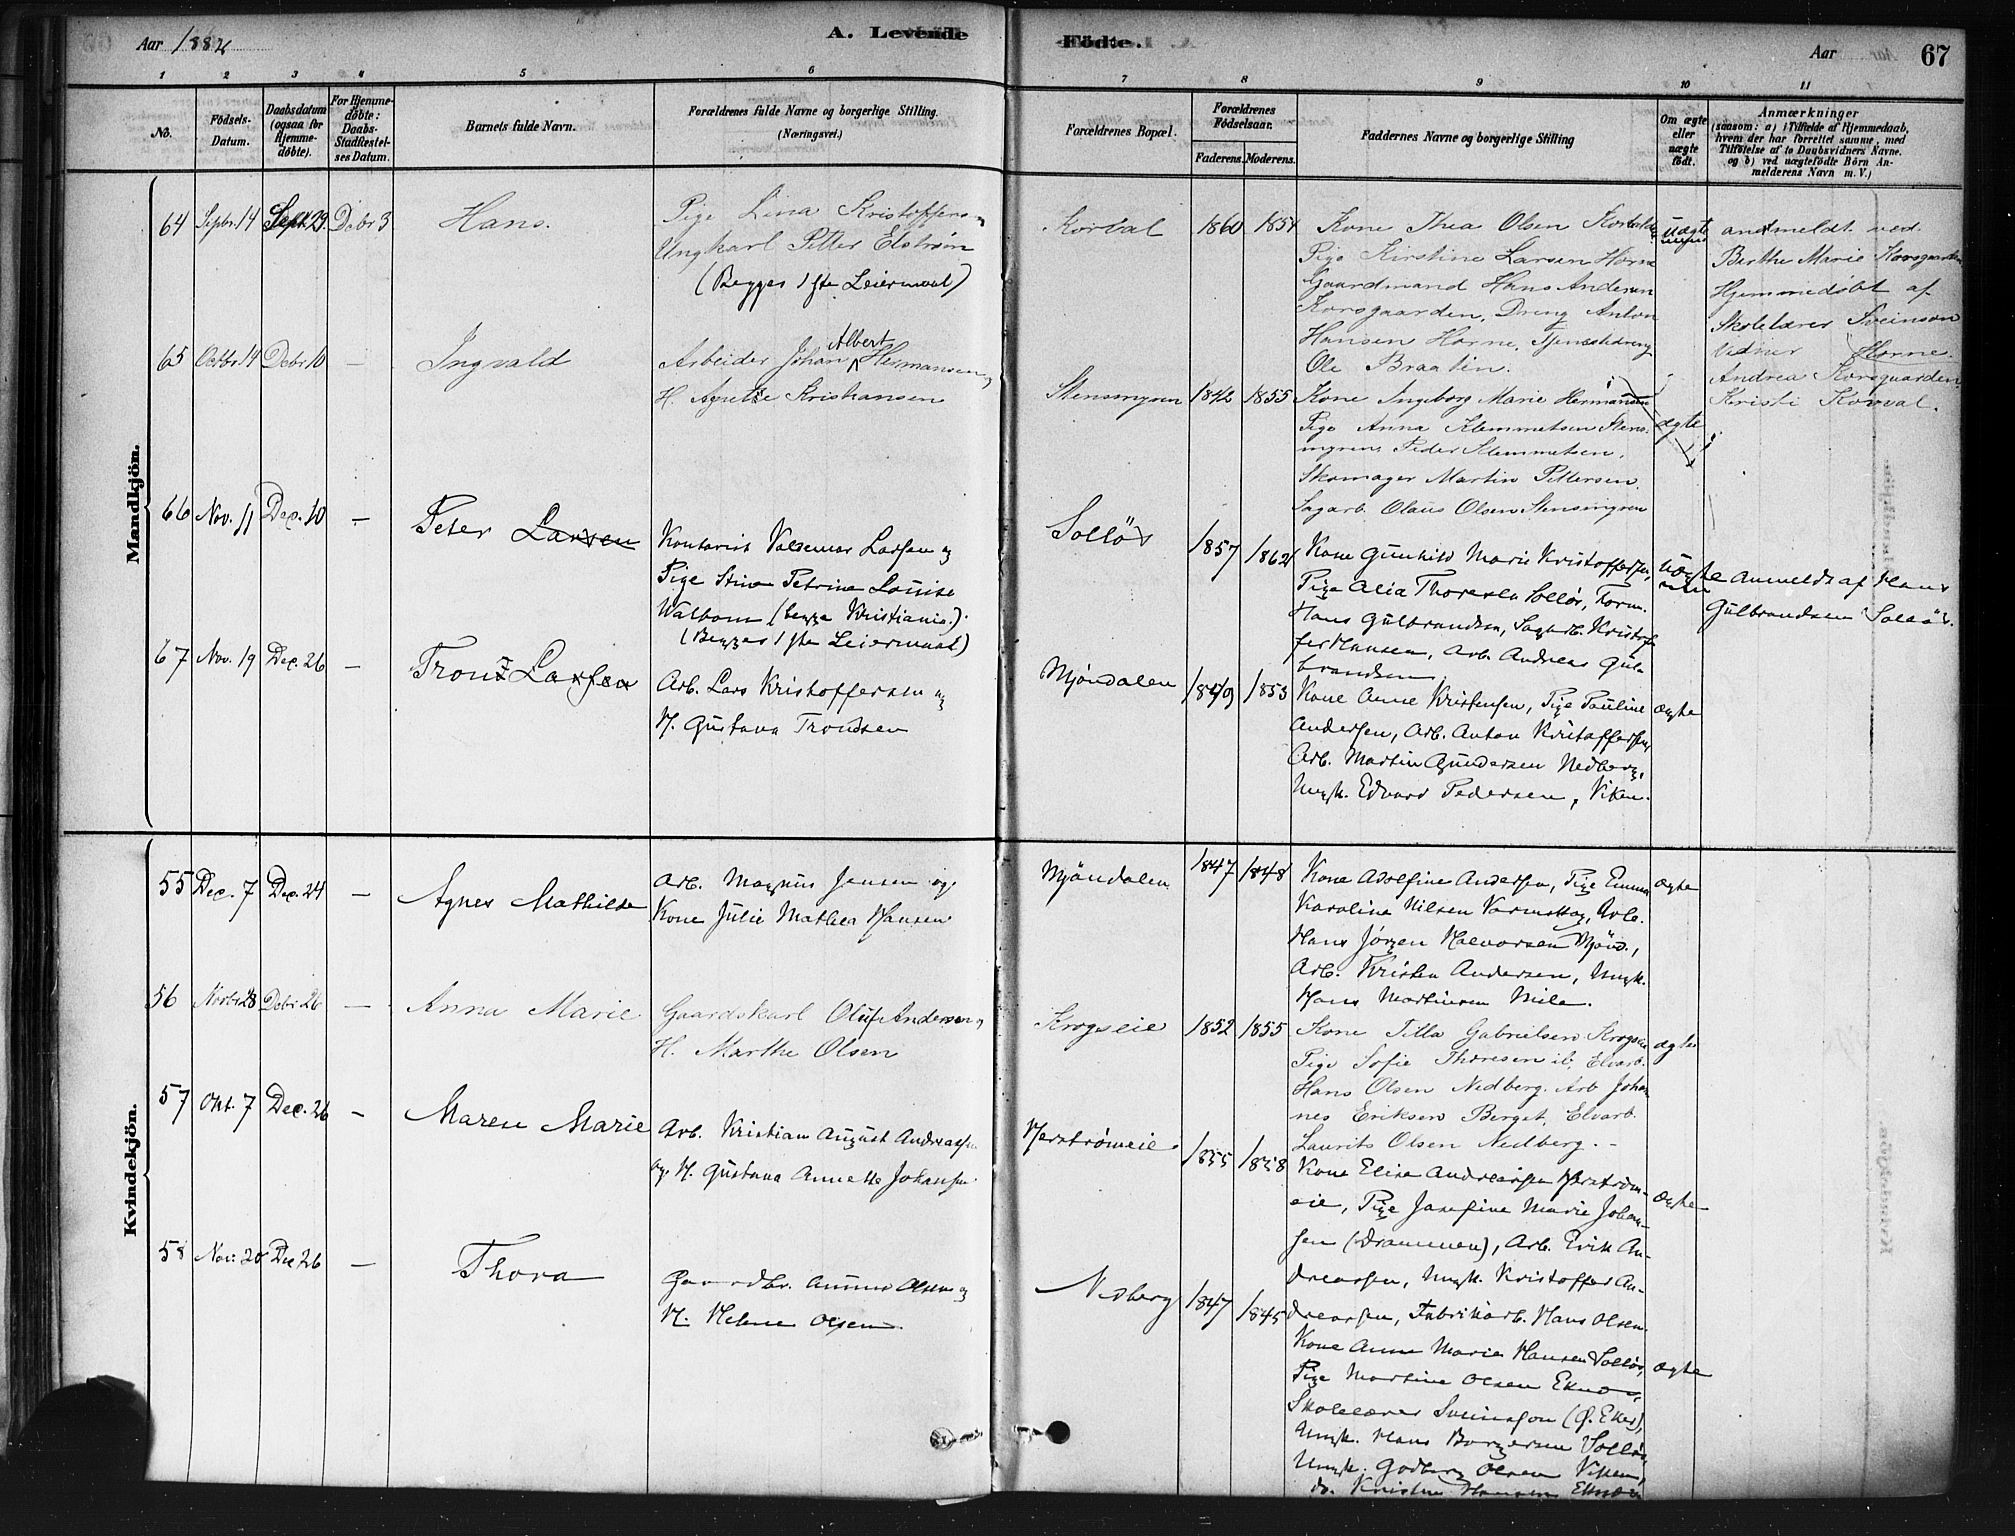 Aar 1882
A. Levende
Födte.
Aar
67
1 2 3 4 5 6 7 8 9 10 11
No.
Födsels-
Datum.
Daabsdatum
(ogsaa for
Hjemme-
döbte).
For Hjemme-
döbte:
Daabs-
Stadfæstel-
ses Datum.
Barnets fulde Navn.
Forældrenes fulde Navne og borgerlige Stilling.
(Næringsvei.)
Forældrenes Bopæl.
Forældrenes
Födselsaar.
Faderens. Moderens.
Faddernes Navne og borgerlige Stilling
Om ægte
eller
uægte
födt.
Anmærkninger
(saasom: a) i Tilfælde af Hjemmedaab,
hvem der har forrettet samme, med
Tilföielse af to Daabsvidners Navne.
og b) ved uægtefödte Börn An-
melderens Navn m. V.)
Mandkjön.
64 Septbr. 14 Septbr. 29. Debr 3
Hans.
Pige Lina Kristoffersen
Ungkarl Petter Elström
(Begges 1ste Leiermaal)
Korval
1860 1854
Kone Thea Olsen Korval
Pige Kirstine Larsen Horne
Gaardmand Hans Andersen
Korsgaarden, Dreng Anton
Hansen Horne, Tjenestedreng
Ole Braaten.
uægte
anmeldt ved
Berthe Marie Korsgaarden
Hjemmedöbt af
Skolelærer Sveinson
Vidner Horne.
Andrea Korsgaarden.
Kristi Korval.
65 Octbr. 14 Debr 10 —
Ingvald
Albert
Arbeider Johan Hermansen
H. Agnethe Kristiansen
Stensmyren
1842 1855
Kone Ingeborg Marie Hermansen
Pige Anna Klemmetsen Stens-
myren, Peder Klemmetsen,
Skomager Martin Pettersen.
Sagarb. Olaus Olsen Stensmyren
ægte
66 Nov. 11 Dec. 10 —
Peter Larsen
Kontorist Valdemar Larsen og
Pige Stine Petrine Louise
Walbom (begge Kristiania).
(Begges 1ste Leiermaal)
Solløs
1857 1862
Kone Gunhild Marie Kristoffersen,
Pige Alia Thoresen Solløs, Form.
Hans Gulbrandsen, Sagarb. Kristof-
fer Hansen, Arb. Andreas Gul-
brandsen
uægte
Anmeldt af Hans
Gulbrandsen Solløs.
67 Nov. 19 Dec. 26 —
Trond Larsen
Arb. Lars Kristoffersen og
H. Gustava Trondsen
Mjøndalen
1849 1853
Kone Anne Kristensen, Pige Pauline
Andersen, Arb. Anton Kristoffersen,
Arb. Martin Gundersen Nedberg,
Ungk. Edvard Pedersen, Viken.
ægte
Kvindekjön.
55 Dec. 7 Dec. 24 —
Agnes Mathilde
Arb. Magnus Jensen og
Kone Julie Mathea Hansen
Mjøndalen
1847 1848
Kone Adolfine Andersen, Pige Emma
Karoline Nilsen Varmskog, Arb.
Hans Jørgen Halvorsen Mjønd.,
Arb. Kristen Andersen, Ungk.
Hans Martinsen Mile.
ægte
56 Novbr 28 Debr. 26 —
Anna Marie
Gaardskarl Oluf Andersen
H. Marthe Olsen
Krogseie
1852 1855
Kone Tilla Gabrielsen Krogseie
Pige Sofie Thoresen ib, Elvarb.
Hans Olsen Nedberg. Arb Johan
nes Eriksen Berget, Elvarb.
Laurits Olsen Nedberg. -
ægte
57 Okt. 7 Dec. 26 —
Maren Marie
Arb. Kristian August Andreassen
og H. Gustava Annette Johansen
Herstrømeie
1855 1858
Kone Elise Andreassen Herstrøm-
eie, Pige Josefine Marie Johan-
sen (Drammen), Arb. Erik An-
dreassen, Ungk. Kristoffer An-
dreassen, Fabrikarb. Hans Olsen.
ægte
58 Nov. 20 Dec 26 —
Thora
Gaardbr. Gunnar Olsen og
H. Helene Olsen
Nedberg
1847 1845
Kone Anne Marie Hansen Solløs,
Pige Martine Olsen Eknæs,
Skolelærer Sveinsson (Ø. Eker),
Ungk. Hans Borgersen Solløs,
Ungk. Godberg Olsen Viken,
do. Kristian Hansen Eknæs
ægte